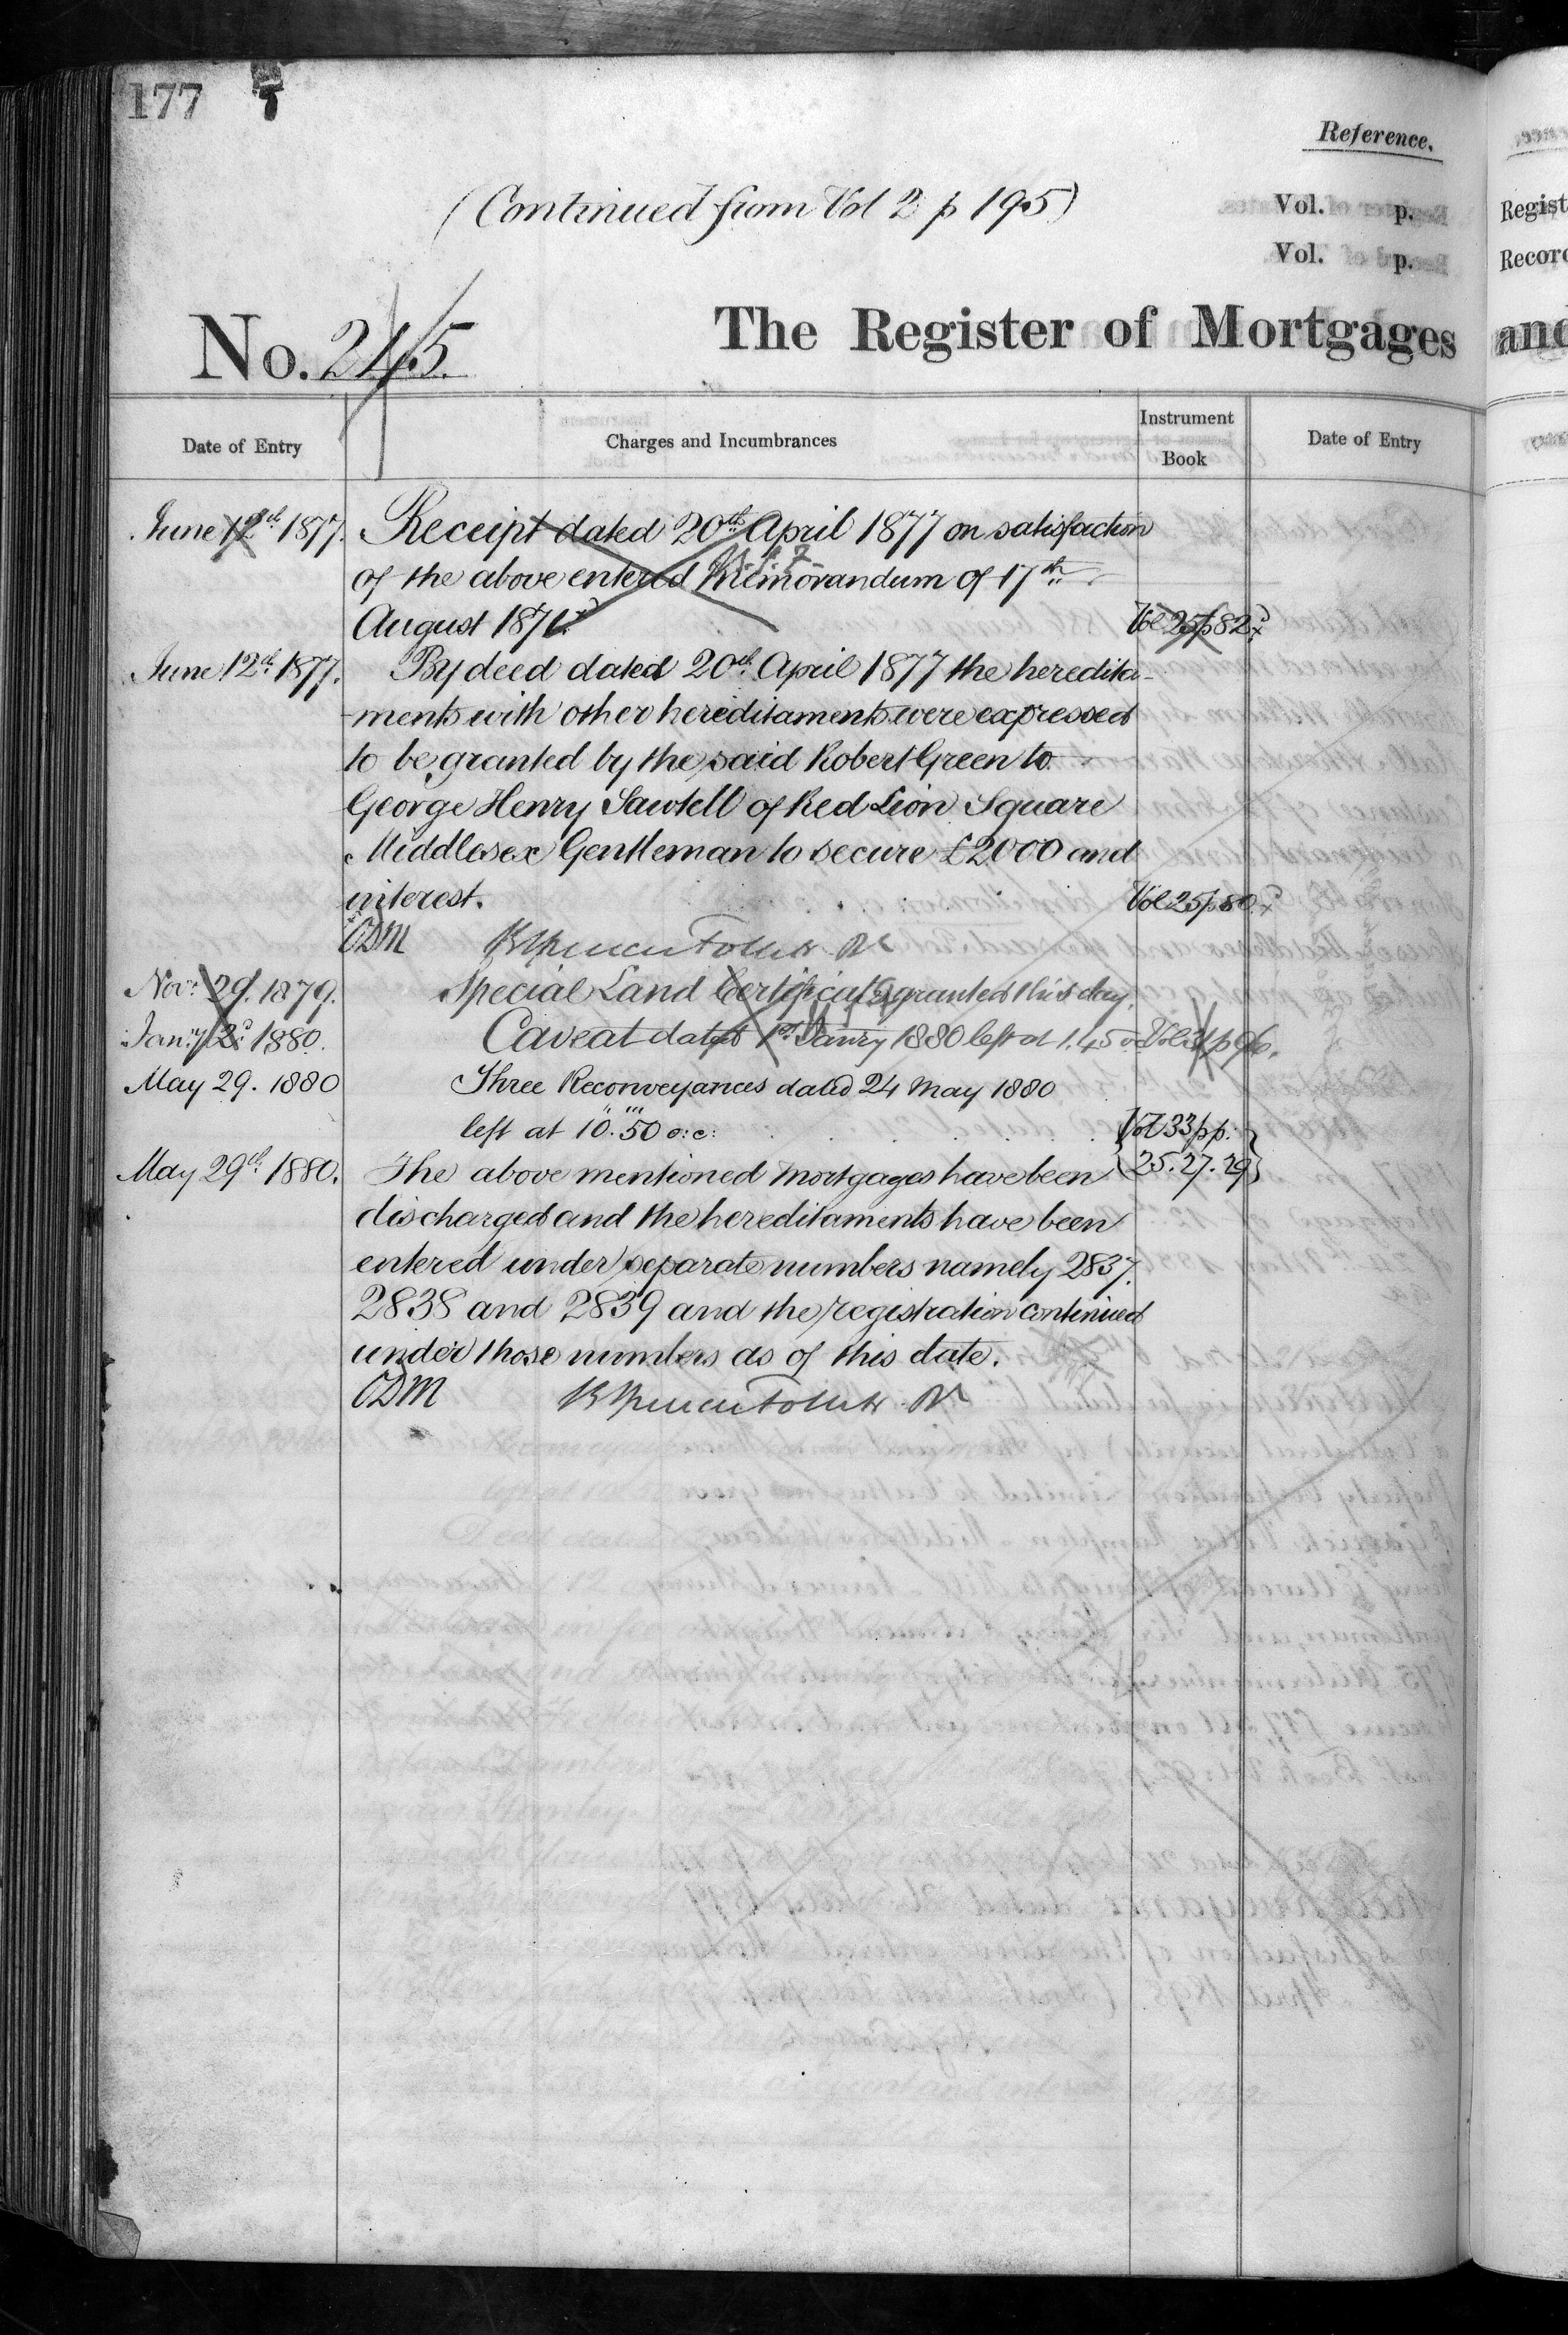 177
Reference.
(Continued from Vol 2 p 195)
Vol. p.
Vol. p.
Regist
Record
No. 245.
The Register of Mortgages and
Date of Entry
Charges and Incumbrances
Instrument Book
Date of Entry
June 12th 1877. Receipt dated 20th April 1877 on satisfaction
of the above entered Memorandum of 17th
August 187 Vol 25 p 82
June 12th 1877. By deed dated 20th April 1877 the heredita-
-ments with other hereditaments were expressed
to be granted by the said Robert Green to
George Henry Sawtell of Red Lion Square
Middlesex Gentleman to secure £2000 and
interest. Vol 25 p 80
Nov: 29. 1879. Special Land Certificate granted this day.
Jany 2d 1880. Caveat dated 1st Janry 1880 left at 1.45 Vol 31 p 96.
May 29. 1880 Three Reconveyances dated 24 May 1880
left at 10. 50 o:c: Vol 33 pp:
25. 27. 29
May 29th 1880. The above mentioned mortgages have been
discharged and the hereditaments have been
entered under separate numbers namely 2837.
2838 and 2839 and the registration continued
under those numbers as of this date.